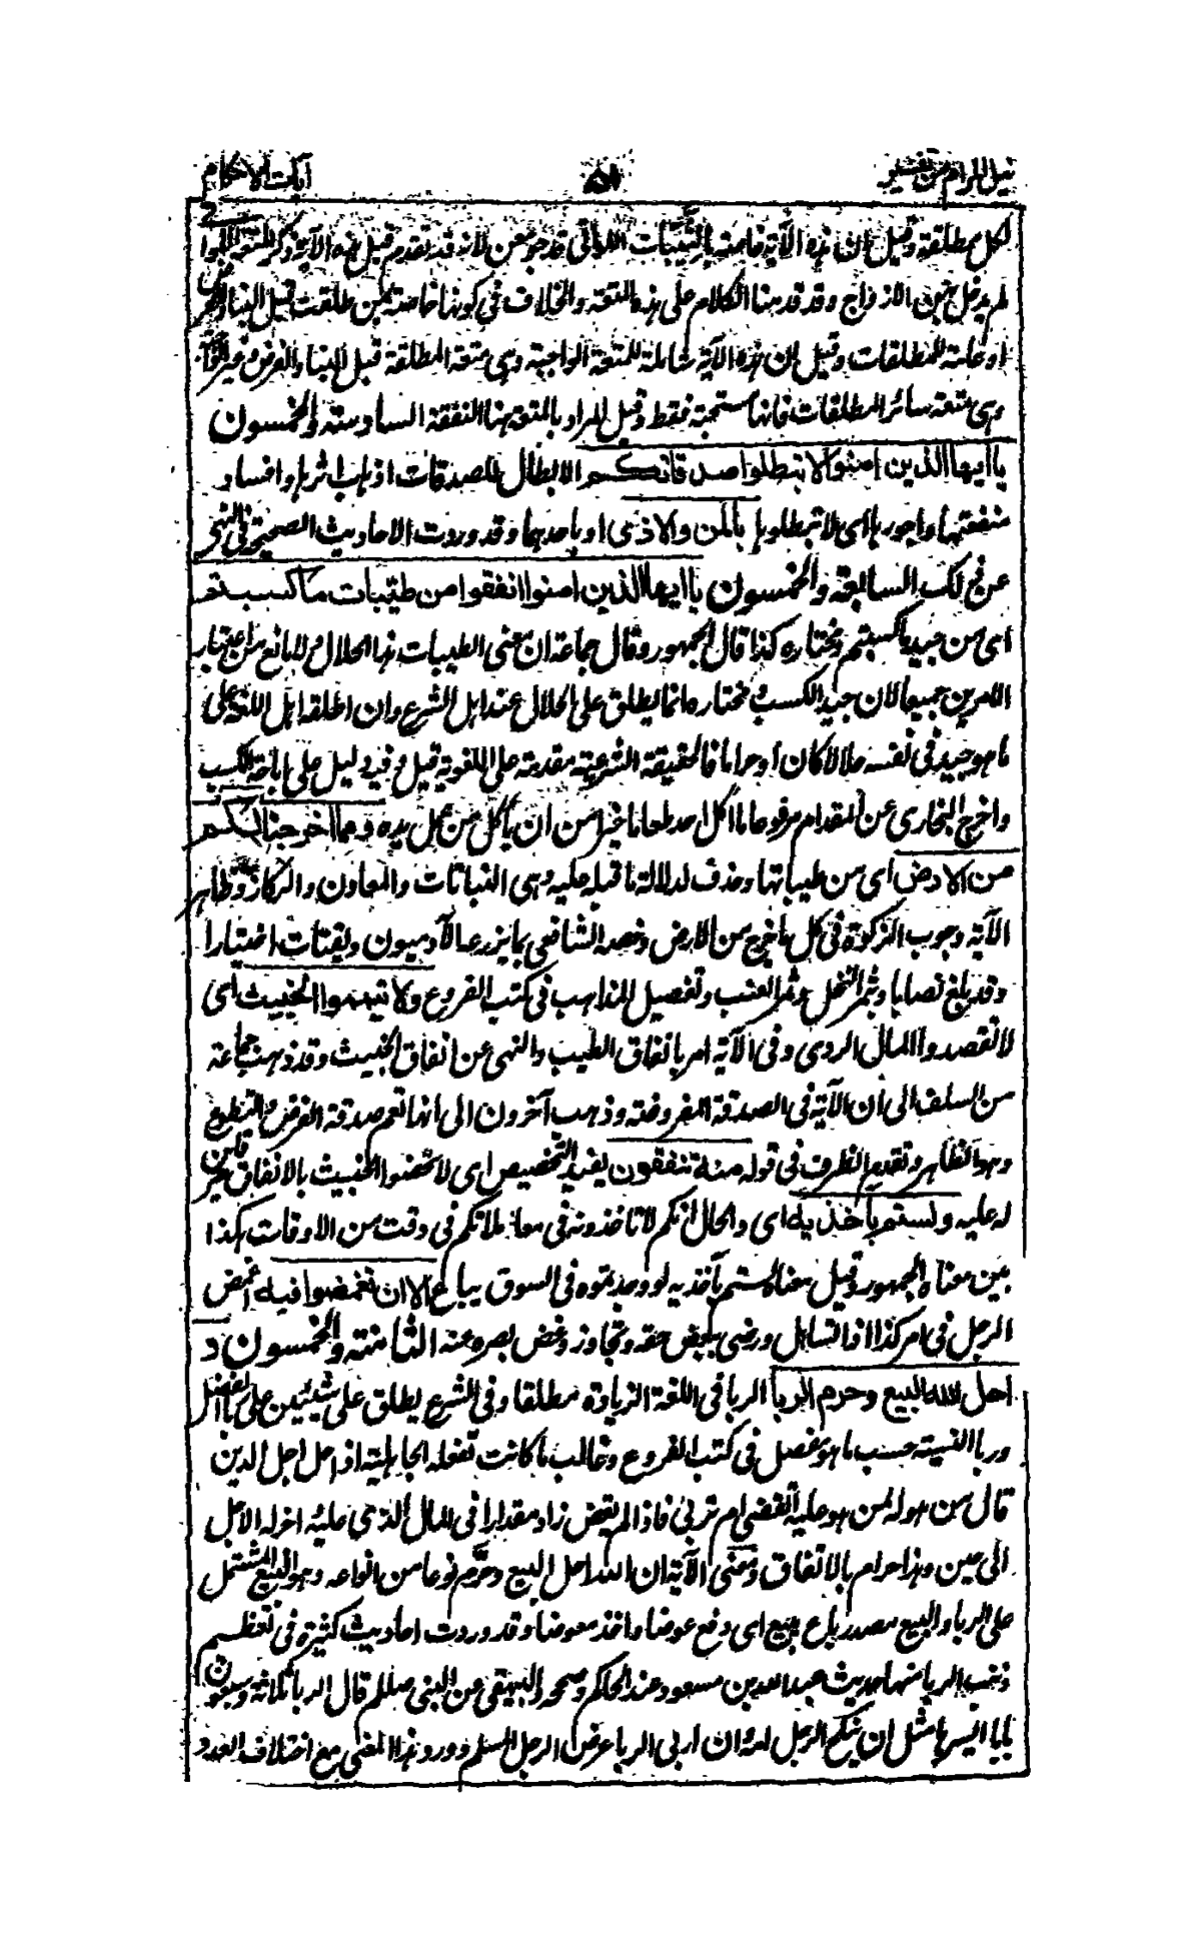 نيل المرام من تفسير ٥١ آيات الاحكام
لكل مطلقة وقيل ان هذه الآية خاصة بالثيبات اللواتي قد جومعن لانه قد تقدم قبل هذه الآية ذكر المتعة للواتي
لم يدخل بهن الازواج وقد قدمنا الكلام على هذه المتعة والخلاف في كونها خاصة بمن طلقت قبل البناء والفرض
او عامة للمطلقات وقيل ان هذه الآية شاملة للمتعة الواجبة وهى متعة المطلقة قبل البناء والفرض وغير الواجبة
وهى متعة سائر المطلقات فانها مستحبة فقط وقيل المراد بالمتعة هنا النفقة السادسة والخمسون
يا ايها الذين امنوا لا تبطلوا صدقاتكم الابطال للصدقات اذهاب اثرها وافساد
منفعتها واجورها اى لا تبطلوها بالمن والاذى او باحدهما وقد وردت الاحاديث الصحيحة في النهى
عن ذلك السابعة والخمسون يا ايها الذين امنوا انفقوا من طيبات ما كسبتم
اى من جيد ما كسبتم ومختاره كذا قال الجمهور وقال جماعة ان معنى الطيبات هنا الحلال ولا مانع من اعتبار
الامرين جميعا لان جيد الكسب ومختاره انما يطلق على الحلال عند اهل الشرع وان اطلقه اهل اللغة على
ما هو جيد في نفسه حلالا كان او حراما فالحقيقة الشرعية مقدمة على اللغوية قيل وفيه دليل على اباحة الكسب
واخرج البخارى عن المقدام مرفوعا ما اكل احد طعاما خيرا من ان ياكل من عمل يده ومما اخرجنا لكم
من الارض اى من طيباتها وحذف لدلالة ما قبله عليه وهى النباتات والمعادن والركاز وظاهر
الآية وجوب الزكوة في كل ما خرج من الارض وخصه الشافعي بما يزرعه الآدميون ويقتات اختيارا
وقد بلغ نصابا وثمر النخل وثمر العنب وتفصيل المذاهب في كتب الفروع ولا تيمموا الخبيث اى
لا تقصدوا المال الردى وفى الآية امر بانفاق الطيب والنهى عن انفاق الخبيث وقد ذهب جماعة
من السلف الى ان الآية فى الصدقة المفروضة وذهب آخرون الى انها تعم صدقة الفرض والتطوع
وهو الظاهر وتقديم الظرف في قوله منه تنفقون يفيد التخصيص اى لا تخصوا الخبيث بالانفاق قاصرين
له عليه ولستم بآخذيه اى والحال انكم لا تاخذونه في معاملاتكم في وقت من الاوقات هكذا
بين معناه الجمهور وقيل معناه لستم بآخذيه لو وجدتموه فى السوق يباع الا ان تغمضوا فيه اغمض
الرجل فى امر كذا اذا تساهل ورضى ببعض حقه وتجاوز وغض بصره عنه الثامنة والخمسون و
احل الله البيع وحرم الربا الربا فى اللغة الزيادة مطلقا وفى الشرع يطلق على شيئين على ربا الفضل
وربا النسيئة حسب ما هو مفصل فى كتب الفروع وغالب ما كانت تفعله الجاهلية اذا حل اجل الدين
قال من هو له لمن هو عليه أتقضى ام تربى فاذا لم يقض زاد مقدارا فى المال الذى عليه واخر له الاجل
الى حين وهذا حرام بالاتفاق ومعنى الآية ان الله احل البيع وحرم نوعا من انواعه وهو البيع المشتمل
على الربا والبيع مصدر باع يبيع اى دفع عوضا واخذ معوضا وقد وردت احاديث كثيرة فى تعظيم
ذنب الربا منها حديث عبدالله بن مسعود عند الحاكم وصححه والبيهقى عن النبى صللم قال الربا ثلاثة وسبعون
بابا ايسرها مثل ان ينكح الرجل امه وان اربى الربا عرض الرجل المسلم وورد هذا المعنى مع اختلاف العدد